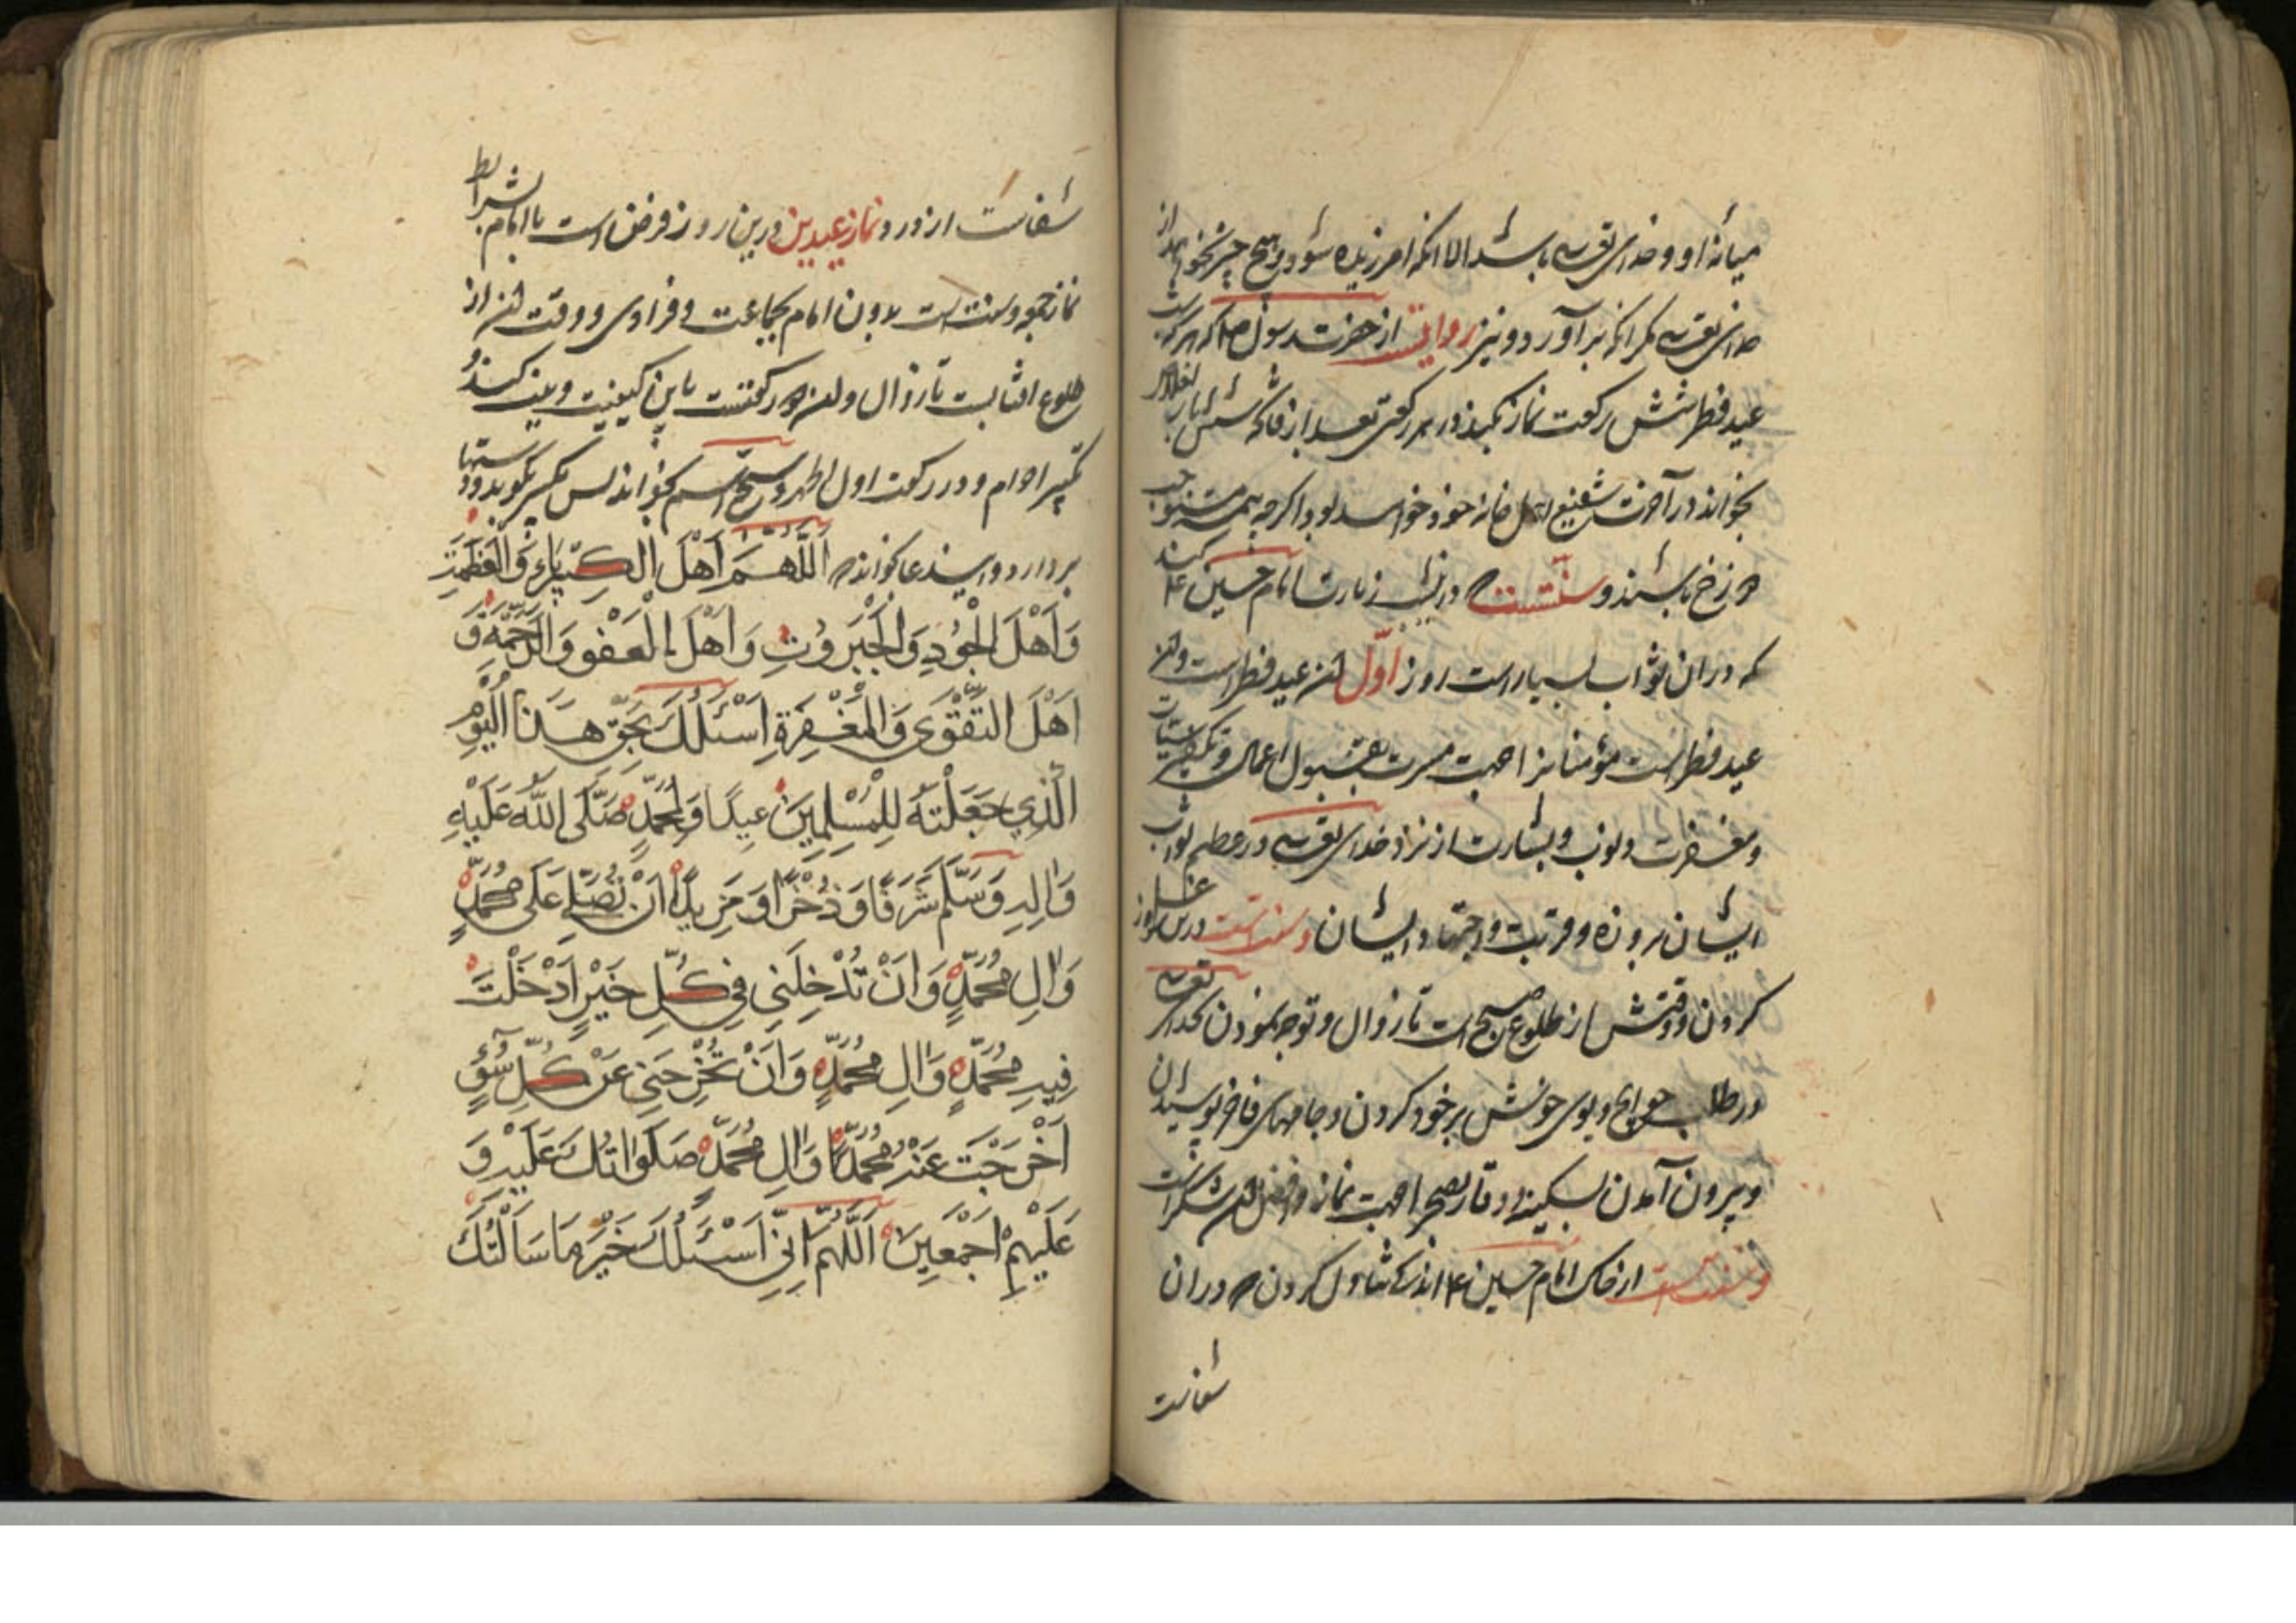 میانه او و خدای تعالی باشد الا انکه امرزیده شود و هیچ چیز نخواهد از
خدای تعالی مکر انکه برآورد و نیز روایت از حضرت رسول ص که هرکه
عید فطر شش رکعت نماز بکند در هر رکعتی بعد از فاتحه شش بار
بخواند در آخرت شفیع اهل خانه خود خواهد بود اکرچه همه مستوجب
دوزخ باشند و سنتست در شب زیارت امام حسین ع کنند
که در ان ثواب بسیار است روز اول عید فطر است و این
عید فطر است مؤمنانرا جهت مسرت بقبول اعمال و تکفیر سیئات
و مغفرت ذنوب و بشارت از نزد خدای تعالی در عظیم ثواب
ایشان بروزه و قربت و اجتهاد ایشان و سنتست درین روز غسل
کردن و وقتش از طلوع صبح است تا زوال و توجه نمودن بخدای تعالی
در طلب حوایج و بوی خوش بر خود کردن و جامهای فاخر پوشیدن
و بیرون آمدن بسکینه و وقار بصحرا جهت نماز و
و سنتست از خاک امام حسین ع اندکی تناول کردن در ان
شفاست
شفاست از درد و نماز عیدین درین روز فرض است با امام بشرایط
نماز جمعه و سنت است بدون امام بجماعت و فرادی و وقت از
طلوع افتابست تا زوال و دو رکعتست باین کیفیت و نیت کند
تکبیر احرام و در رکعت اول الحمد و سبح اسم بخواند پس تکبیر بکوید و دستها
بردارد و این دعا بخواند اَللّٰهُمَّ اَهْلَ الْكِبْرِيَاءِ وَالْعَظَمَةِ
وَاَهْلَ الْجُودِ وَالْجَبَرُوتِ وَاَهْلَ الْعَفْوِ وَالرَّحْمَةِ وَ
اَهْلَ التَّقْوَى وَالْمَغْفِرَةِ اَسْئَلُكَ بِحَقِّ هٰذَا الْيَوْمِ
الَّذِي جَعَلْتَهُ لِلْمُسْلِمِينَ عِيدًا وَلِمُحَمَّدٍ صَلَّى اللّٰهُ عَلَيْهِ
وَاٰلِهِ وَسَلَّمَ شَرَفًا وَذُخْرًا وَمَزِيدًا اَنْ تُصَلِّيَ عَلَى مُحَمَّدٍ
وَاٰلِ مُحَمَّدٍ وَاَنْ تُدْخِلَنِي فِي كُلِّ خَيْرٍ اَدْخَلْتَ
فِيهِ مُحَمَّدًا وَاٰلَ مُحَمَّدٍ وَاَنْ تُخْرِجَنِي عَنْ كُلِّ سُوْءٍ
اَخْرَجْتَ عَنْهُ مُحَمَّدًا وَاٰلَ مُحَمَّدٍ صَلَوَاتُكَ عَلَيْهِ وَ
عَلَيْهِمْ اَجْمَعِينَ اَللّٰهُمَّ اِنِّي اَسْئَلُكَ خَيْرَ مَا سَاَلَتْكَ